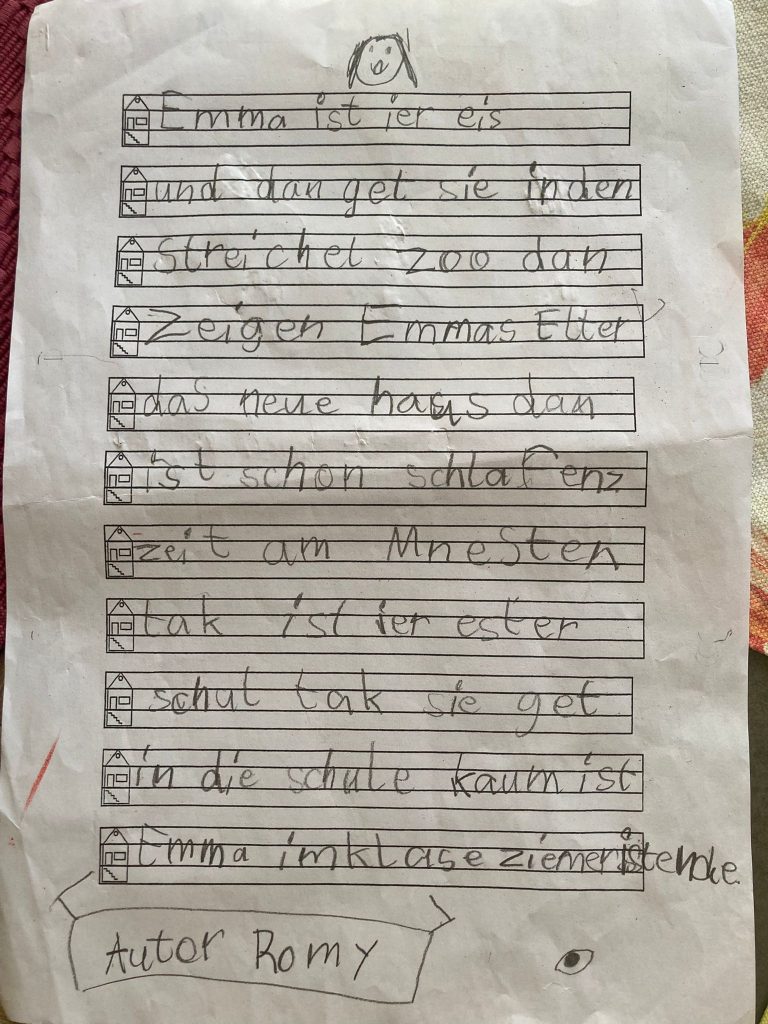 Emma ist ier eis
und dan get sie in den
streichel zoo dan
Zeigen Emmas Elter
das neue haus dan
ist schon schlafenz
zeit am Mnesten
tak ist ier ester
schul tak sie get
in die schule kaum ist
Emma imklase ziemer ist ende
Autor Romy